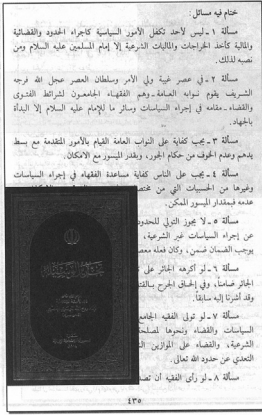 ختام فيه مسائل:
مسألة ١ - ليس لأحد تكفل الأمور السياسية كإجراء الحدود والقضائية
والمالية كأخذ الخراجات والماليات الشرعية إلا إمام المسلمين عليه السلام ومن
نصبه لذلك.
مسألة ٢ - في عصر غيبة ولي الأمر وسلطان العصر عجل الله فرجه
الشريف يقوم نوابه العامة - وهم الفقهاء الجامعون لشرائط الفتوى
والقضاء - مقامه في إجراء السياسات وسائر ما للإمام عليه السلام إلا البدأة
بالجهاد.
مسألة ٣ - يجب كفاية على النواب العامة القيام بالأمور المتقدمة مع بسط
يدهم وعدم الخوف من حكام الجور، وبقدر الميسور مع الامكان.
مسألة ٤ - يجب على الناس كفاية مساعدة الفقهاء في إجراء السياسات
وغيرها من الحسبيات التي من
عدمه فبمقدار الميسور الممكن.
مسألة ٥ - لا يجوز التولي للحدود
عن إجراء السياسات غير الشرعية،
يوجب الضمان ضمن، وكان فعله
مسألة ٦ - لو أكرهه الجائر على
الجائر ضامناً، وفي إلحاق الجرح
وقد أشرنا إليه سابقاً.
مسألة ٧ - لو تولى الفقيه الجامع
السياسات والقضاء ونحوها لمصلحة
الشرعية، والقضاء على الموازين
التعدي عن حدود الله تعالى.
مسألة ٨ - لو رأى الفقيه أن
٤٣٥